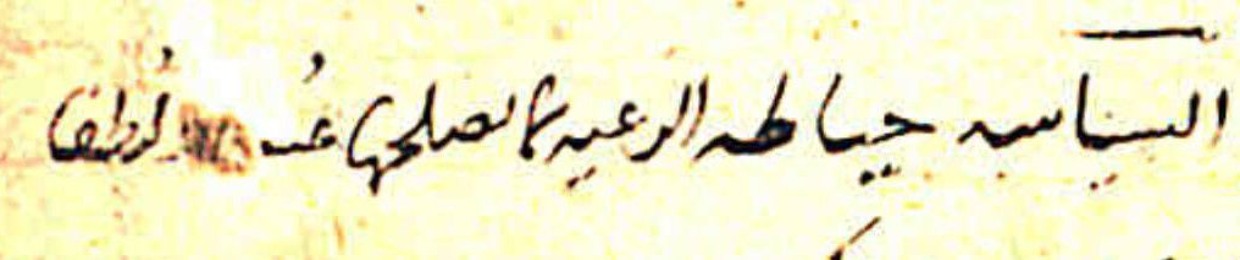 السياسه حياطه الرعيه بما يصلحها عنفا ولطفا